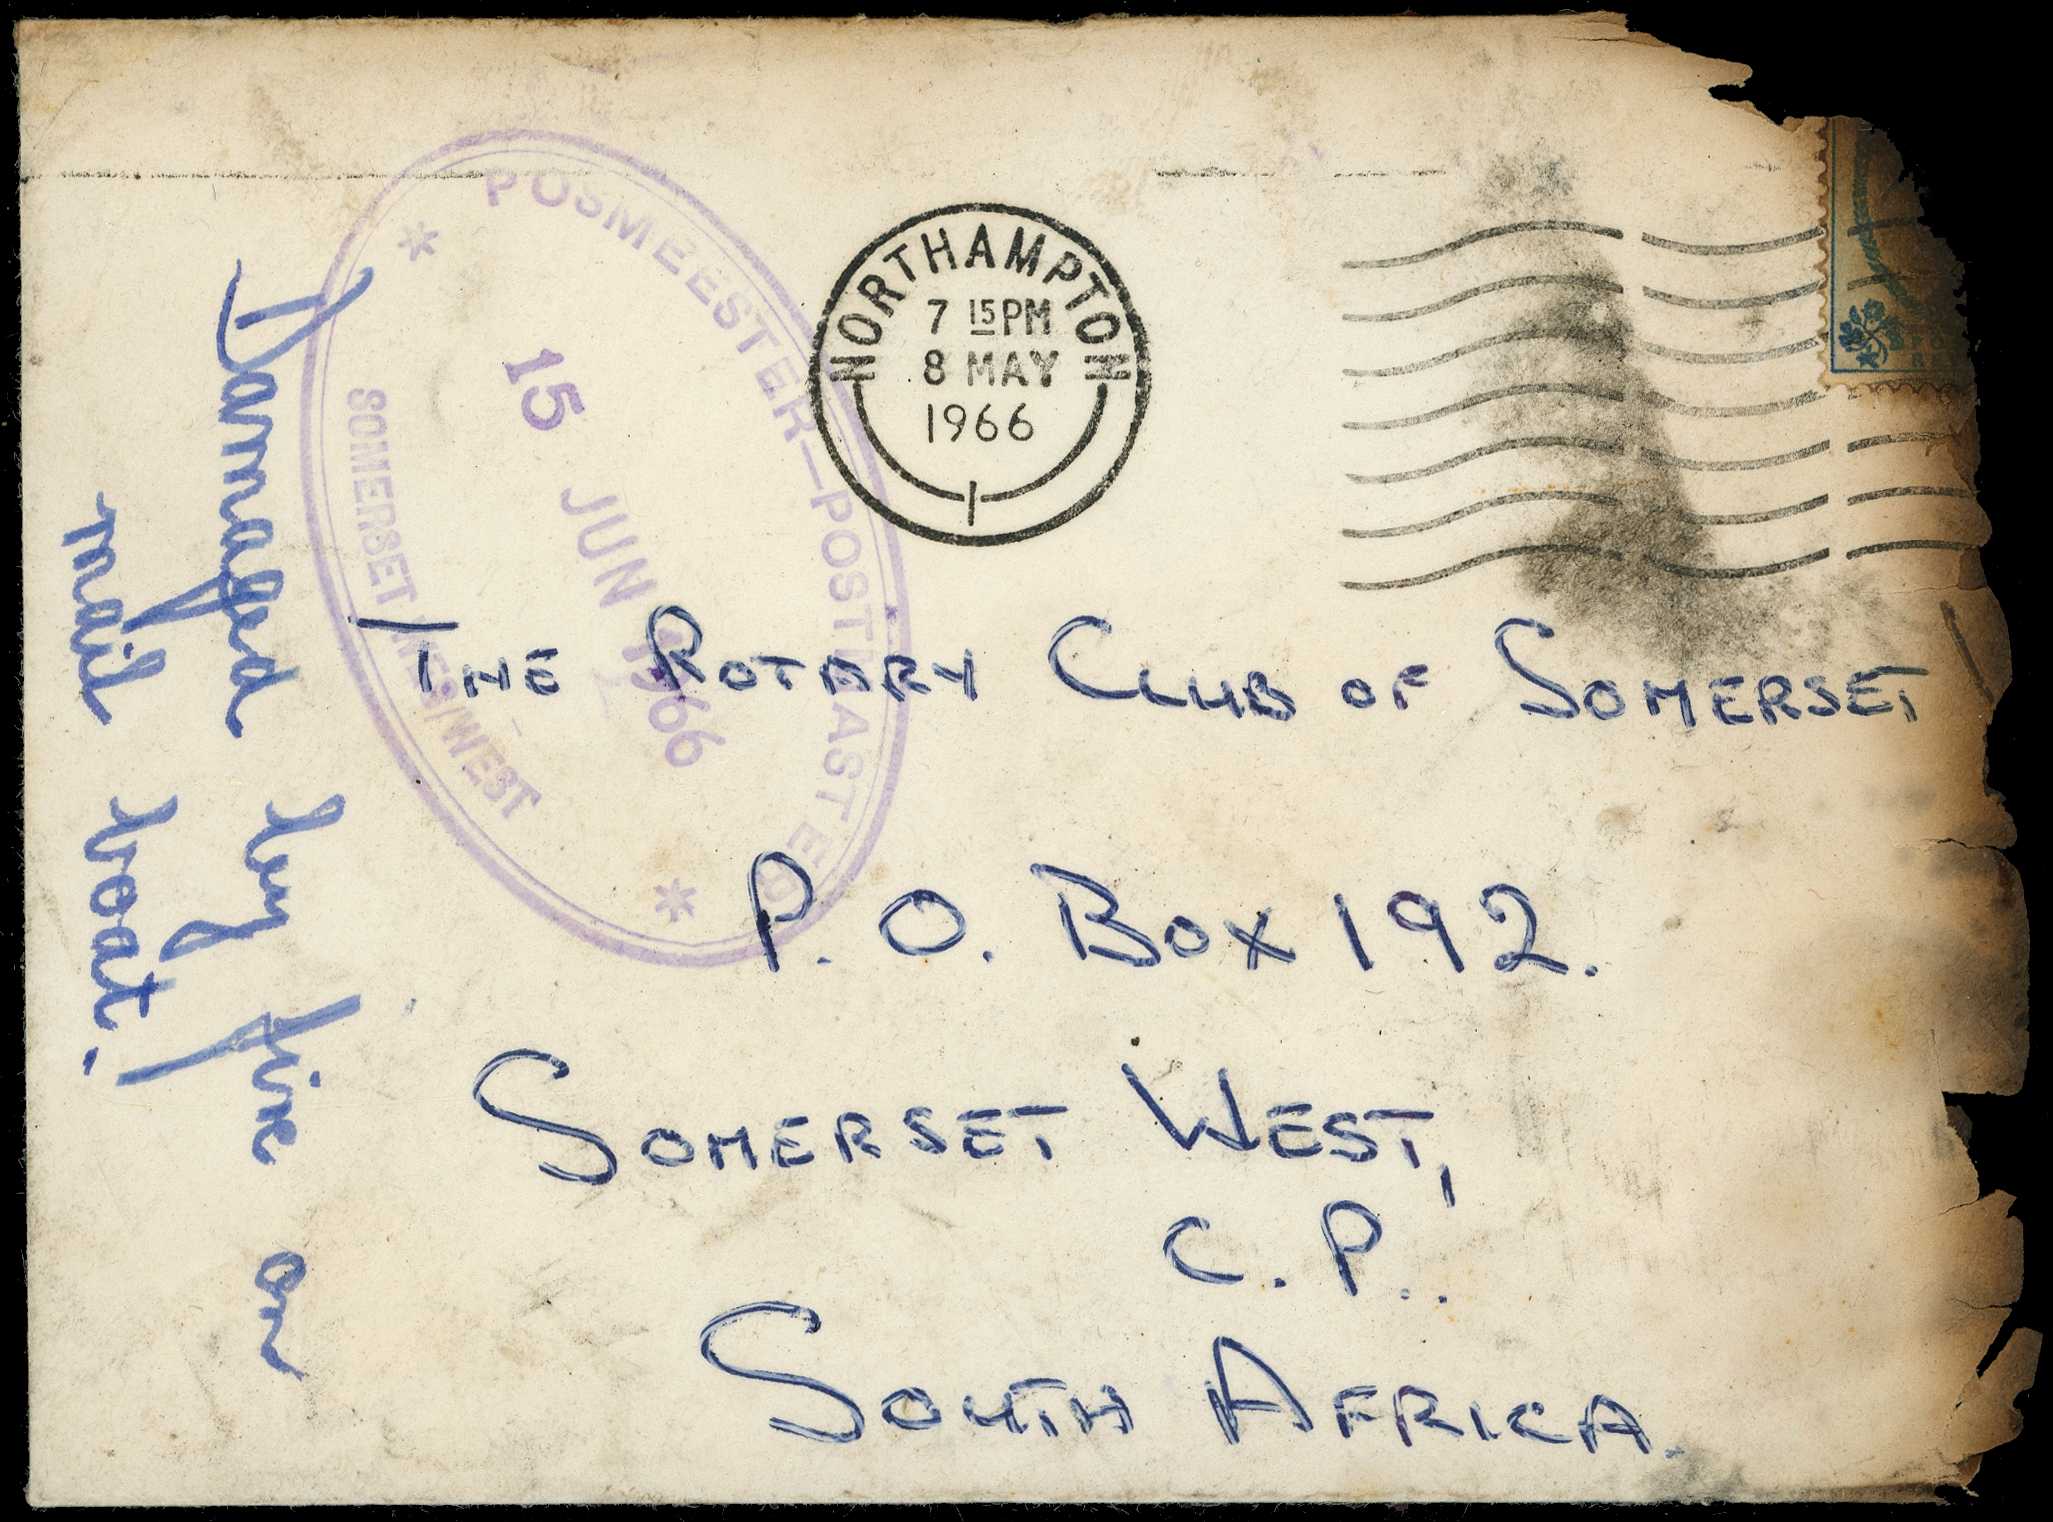 POSMEESTER—POSTMASTER
15 JUN 1966
SOMERSET WES/WEST
NORTHAMPTON
7 15 PM
8 MAY
1966
1
Damaged by fire on
mail boat.
THE ROTARY CLUB OF SOMERSET
P. O. BOX 192.
SOMERSET WEST,
C. P.
SOUTH AFRICA.